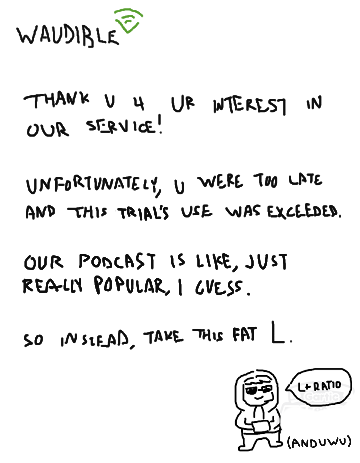 WAUDIBLE
THANK U 4 UR INTEREST IN
OUR SERVICE!
UNFORTUNATELY, U WERE TOO LATE
AND THIS TRIAL'S USE WAS EXCEEDED.
OUR PODCAST IS LIKE, JUST
REALLY POPULAR, I GUESS.
SO INSTEAD, TAKE THIS FAT L.
L+RATIO
(ANDUWU)